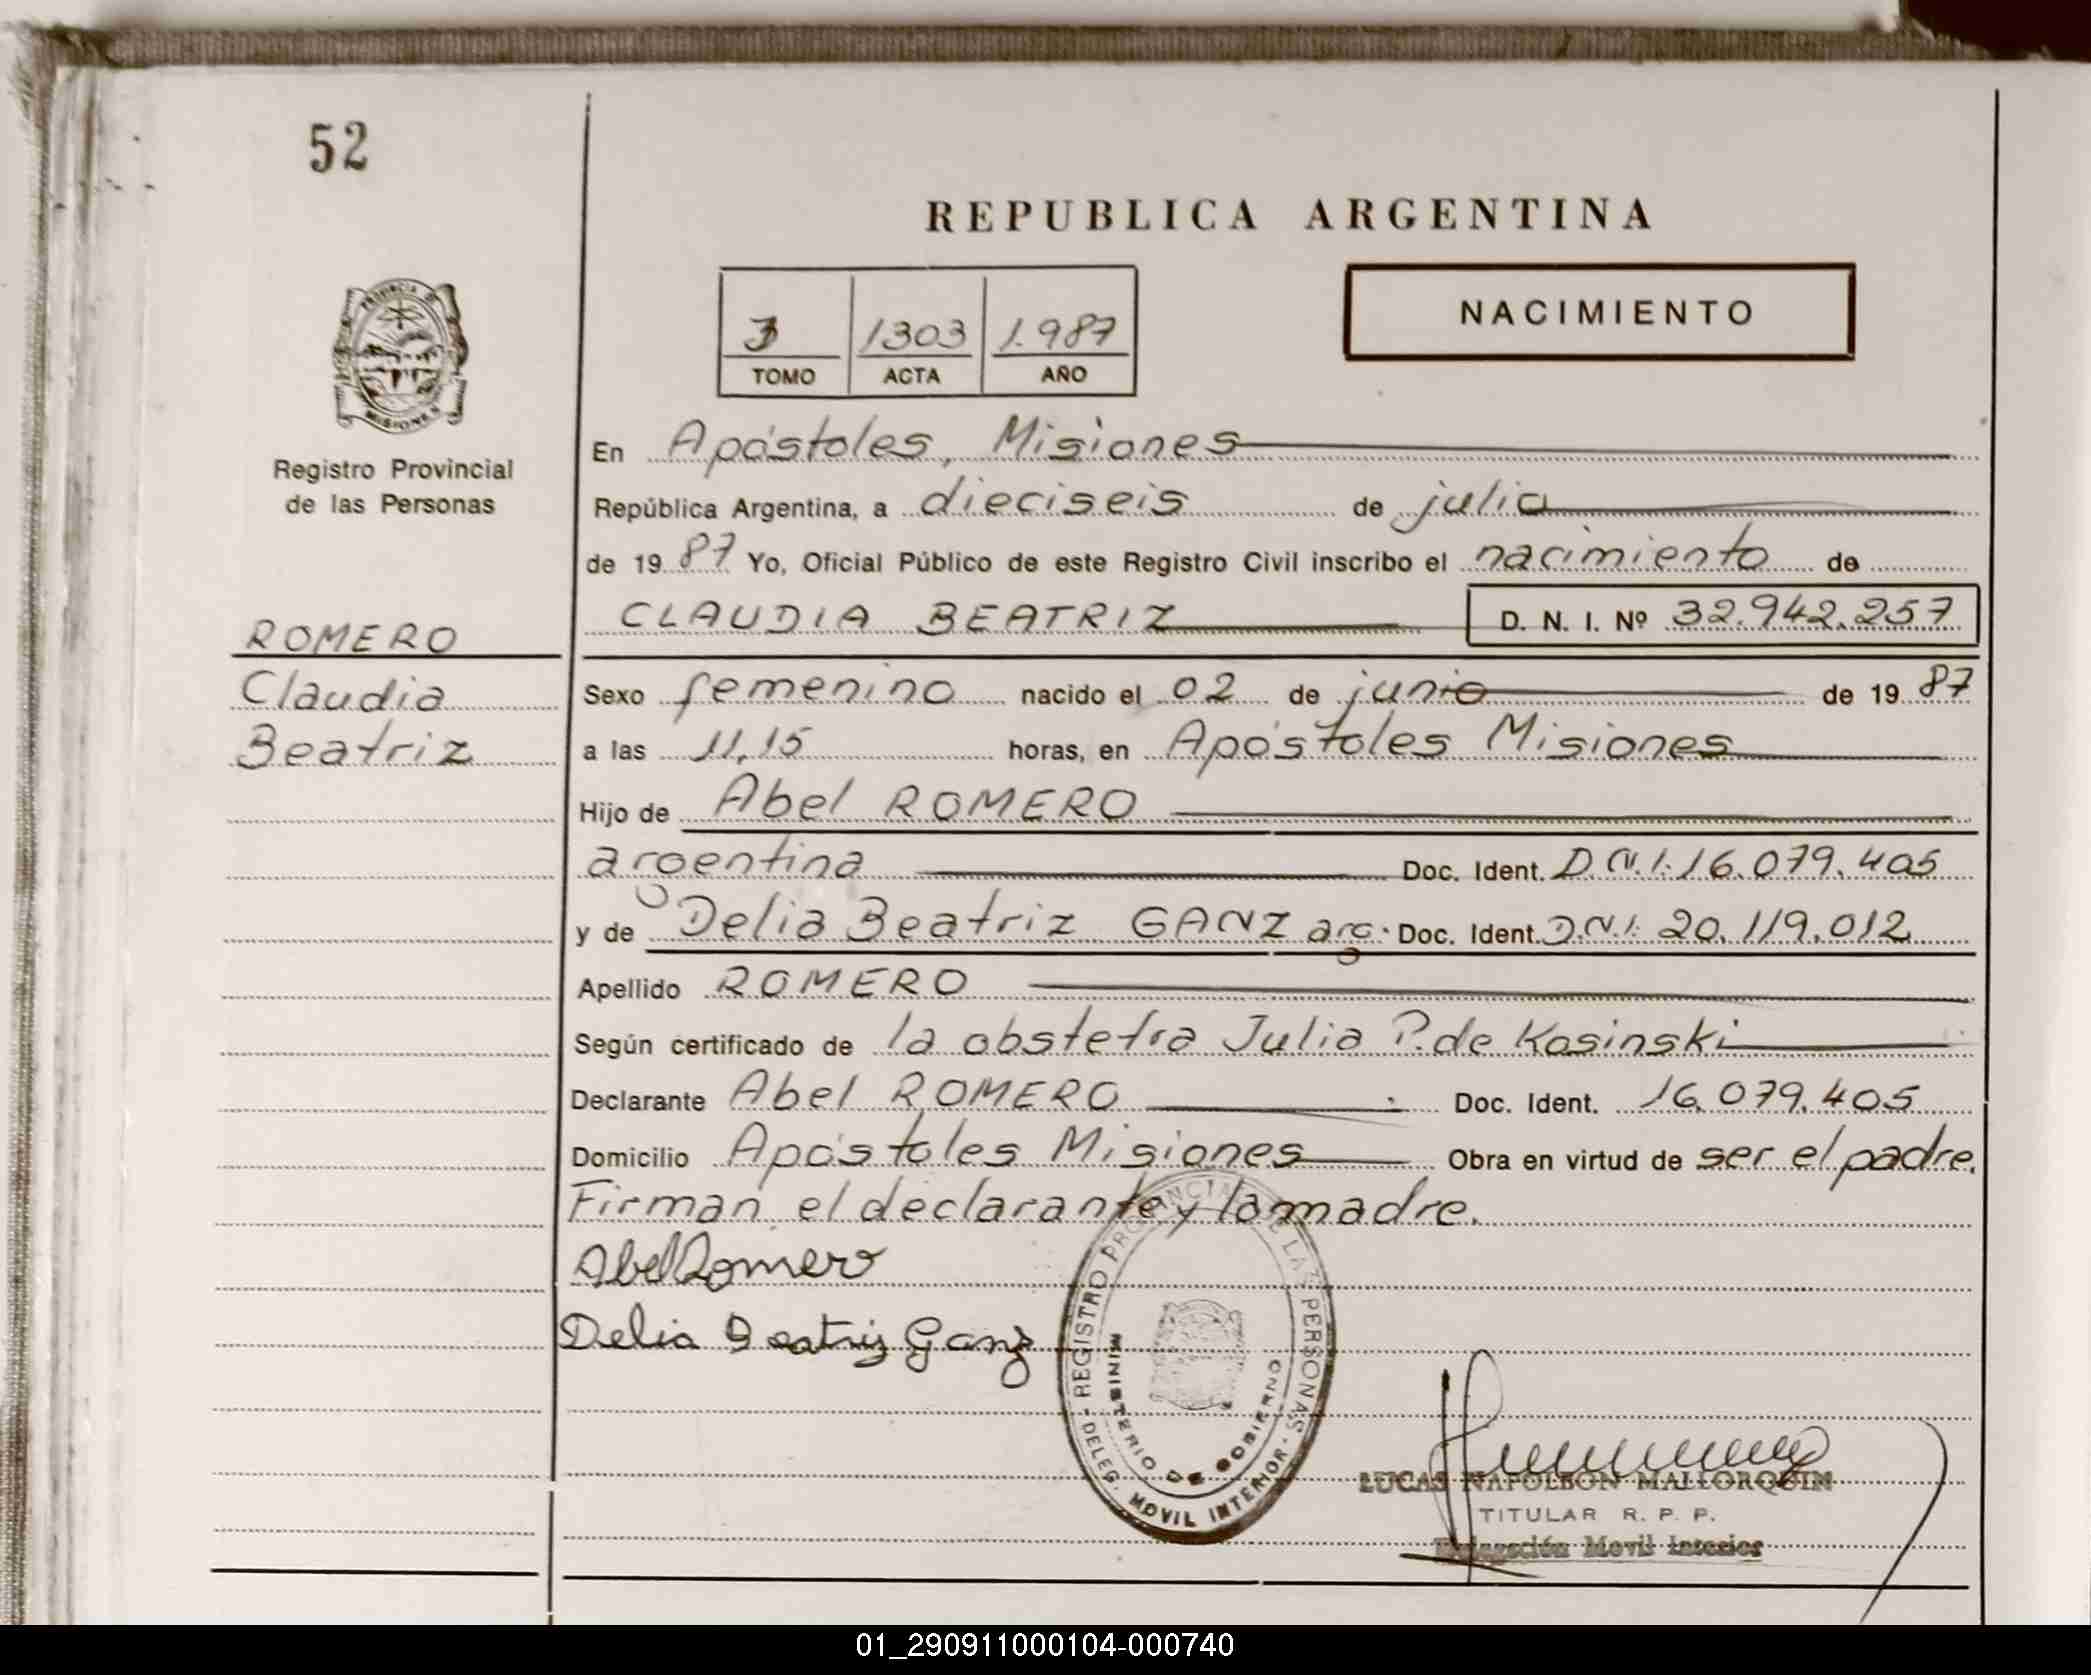 52
REPUBLICA ARGENTINA
NACIMIENTO
1303 1.987
TOMO ACTA AÑO
PROVINCIA D MISIONES
Registro Provincial
de las Personas
En Apóstoles, Misiones
República Argentina, a dieciseis de julio
de 19 87 Yo, Oficial Público de este Registro Civil inscribo el nacimiento de
CLAUDIA BEATRIZ D. N. I. Nº 32.942.257
ROMERO
Claudia
Beatriz
Sexo femenino nacido el 02 de junio de 19 87
a las 11,15 horas, en Apóstoles Misiones
Hijo de Abel ROMERO
argentina Doc. Ident. D.N.I. 16.079.405
y de Delia Beatriz GANZ arg. Doc. Ident. D.N.I. 20.119.012
Apellido ROMERO
Según certificado de la obstetra Julia P. de Kosinski
Declarante Abel ROMERO Doc. Ident. 16.079.405
Domicilio Apóstoles Misiones Obra en virtud de ser el padre.
Firman el declarante y la madre.
Abel Romero
Delia Beatriz Ganz
REGISTRO PROVINCIAL DE LAS PERSONAS
MINISTERIO DE GOBIERNO
- DELEG. MOVIL INTERIOR -
LUCAS NAPOLEON MALLORQUIN
TITULAR R. P. P.
Delegación Movil Interior
01_290911000104-000740